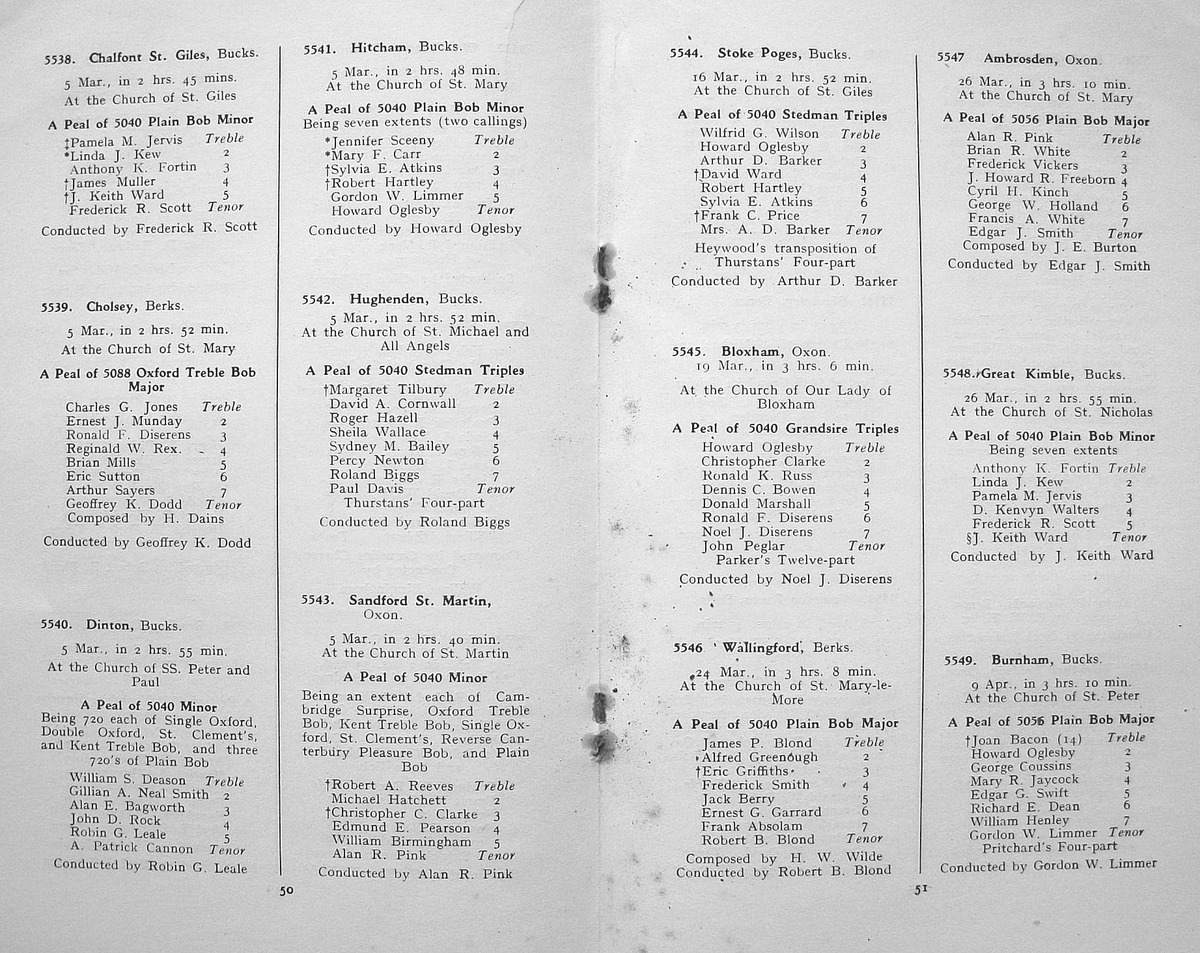 5538. Chalfont St. Giles, Bucks.
5 Mar., in 2 hrs. 45 mins.
At the Church of St. Giles
A Peal of 5040 Plain Bob Minor
‡Pamela M. Jervis Treble
*Linda J. Kew 2
Anthony K. Fortin 3
†James Muller 4
†J. Keith Ward 5
Frederick R. Scott Tenor
Conducted by Frederick R. Scott
5539. Cholsey, Berks.
5 Mar., in 2 hrs. 52 min.
At the Church of St. Mary
A Peal of 5088 Oxford Treble Bob
Major
Charles G. Jones Treble
Ernest J. Munday 2
Ronald F. Diserens 3
Reginald W. Rex. 4
Brian Mills 5
Eric Sutton 6
Arthur Sayers 7
Geoffrey K. Dodd Tenor
Composed by H. Dains
Conducted by Geoffrey K. Dodd
5540. Dinton, Bucks.
5 Mar., in 2 hrs. 55 min.
At the Church of SS. Peter and
Paul
A Peal of 5040 Minor
Being 720 each of Single Oxford,
Double Oxford, St. Clement's,
and Kent Treble Bob, and three
720's of Plain Bob
William S. Deason Treble
Gillian A. Neal Smith 2
Alan E. Bagworth 3
John D. Rock 4
Robin G. Leale 5
A. Patrick Cannon Tenor
Conducted by Robin G. Leale
5541. Hitcham, Bucks.
5 Mar., in 2 hrs. 48 min.
At the Church of St. Mary
A Peal of 5040 Plain Bob Minor
Being seven extents (two callings)
*Jennifer Sceeny Treble
*Mary F. Carr 2
†Sylvia E. Atkins 3
†Robert Hartley 4
Gordon W. Limmer 5
Howard Oglesby Tenor
Conducted by Howard Oglesby
5542. Hughenden, Bucks.
5 Mar., in 2 hrs. 52 min.
At the Church of St. Michael and
All Angels
A Peal of 5040 Stedman Triples
†Margaret Tilbury Treble
David A. Cornwall 2
Roger Hazell 3
Sheila Wallace 4
Sydney M. Bailey 5
Percy Newton 6
Roland Biggs 7
Paul Davis Tenor
Thurstans' Four-part
Conducted by Roland Biggs
5543. Sandford St. Martin,
Oxon.
5 Mar., in 2 hrs. 40 min.
At the Church of St. Martin
A Peal of 5040 Minor
Being an extent each of Cam-
bridge Surprise, Oxford Treble
Bob, Kent Treble Bob, Single Ox-
ford, St. Clement's, Reverse Can-
terbury Pleasure Bob, and Plain
Bob
†Robert A. Reeves Treble
Michael Hatchett 2
†Christopher C. Clarke 3
Edmund E. Pearson 4
William Birmingham 5
Alan R. Pink Tenor
Conducted by Alan R. Pink
50
5544. Stoke Poges, Bucks.
16 Mar., in 2 hrs. 52 min.
At the Church of St. Giles
A Peal of 5040 Stedman Triples
Wilfrid G. Wilson Treble
Howard Oglesby 2
Arthur D. Barker 3
†David Ward 4
Robert Hartley 5
Sylvia E. Atkins 6
†Frank C. Price 7
Mrs. A. D. Barker Tenor
Heywood's transposition of
Thurstans' Four-part
Conducted by Arthur D. Barker
5545. Bloxham, Oxon.
19 Mar., in 3 hrs. 6 min.
At the Church of Our Lady of
Bloxham
A Peal of 5040 Grandsire Triples
Howard Oglesby Treble
Christopher Clarke 2
Ronald K. Russ 3
Dennis C. Bowen 4
Donald Marshall 5
Ronald F. Diserens 6
Noel J. Diserens 7
John Peglar Tenor
Parker's Twelve-part
Conducted by Noel J. Diserens
5546 Wallingford, Berks.
24 Mar., in 3 hrs. 8 min.
At the Church of St. Mary-le-
More
A Peal of 5040 Plain Bob Major
James P. Blond Treble
Alfred Greenough 2
†Eric Griffiths 3
Frederick Smith 4
Jack Berry 5
Ernest G. Garrard 6
Frank Absolam 7
Robert B. Blond Tenor
Composed by H. W. Wilde
Conducted by Robert B. Blond
5547 Ambrosden, Oxon.
26 Mar., in 3 hrs. 10 min.
At the Church of St. Mary
A Peal of 5056 Plain Bob Major
Alan R. Pink Treble
Brian R. White 2
Frederick Vickers 3
J. Howard R. Freeborn 4
Cyril H. Kinch 5
George W. Holland 6
Francis A. White 7
Edgar J. Smith Tenor
Composed by J. E. Burton
Conducted by Edgar J. Smith
5548. Great Kimble, Bucks.
26 Mar., in 2 hrs. 55 min.
At the Church of St. Nicholas
A Peal of 5040 Plain Bob Minor
Being seven extents
Anthony K. Fortin Treble
Linda J. Kew 2
Pamela M. Jervis 3
D. Kenvyn Walters 4
Frederick R. Scott 5
§J. Keith Ward Tenor
Conducted by J. Keith Ward
5549. Burnham, Bucks.
9 Apr., in 3 hrs. 10 min.
At the Church of St. Peter
A Peal of 5056 Plain Bob Major
†Joan Bacon (14) Treble
Howard Oglesby 2
George Coussins 3
Mary R. Jaycock 4
Edgar G. Swift 5
Richard E. Dean 6
William Henley 7
Gordon W. Limmer Tenor
Pritchard's Four-part
Conducted by Gordon W. Limmer
51